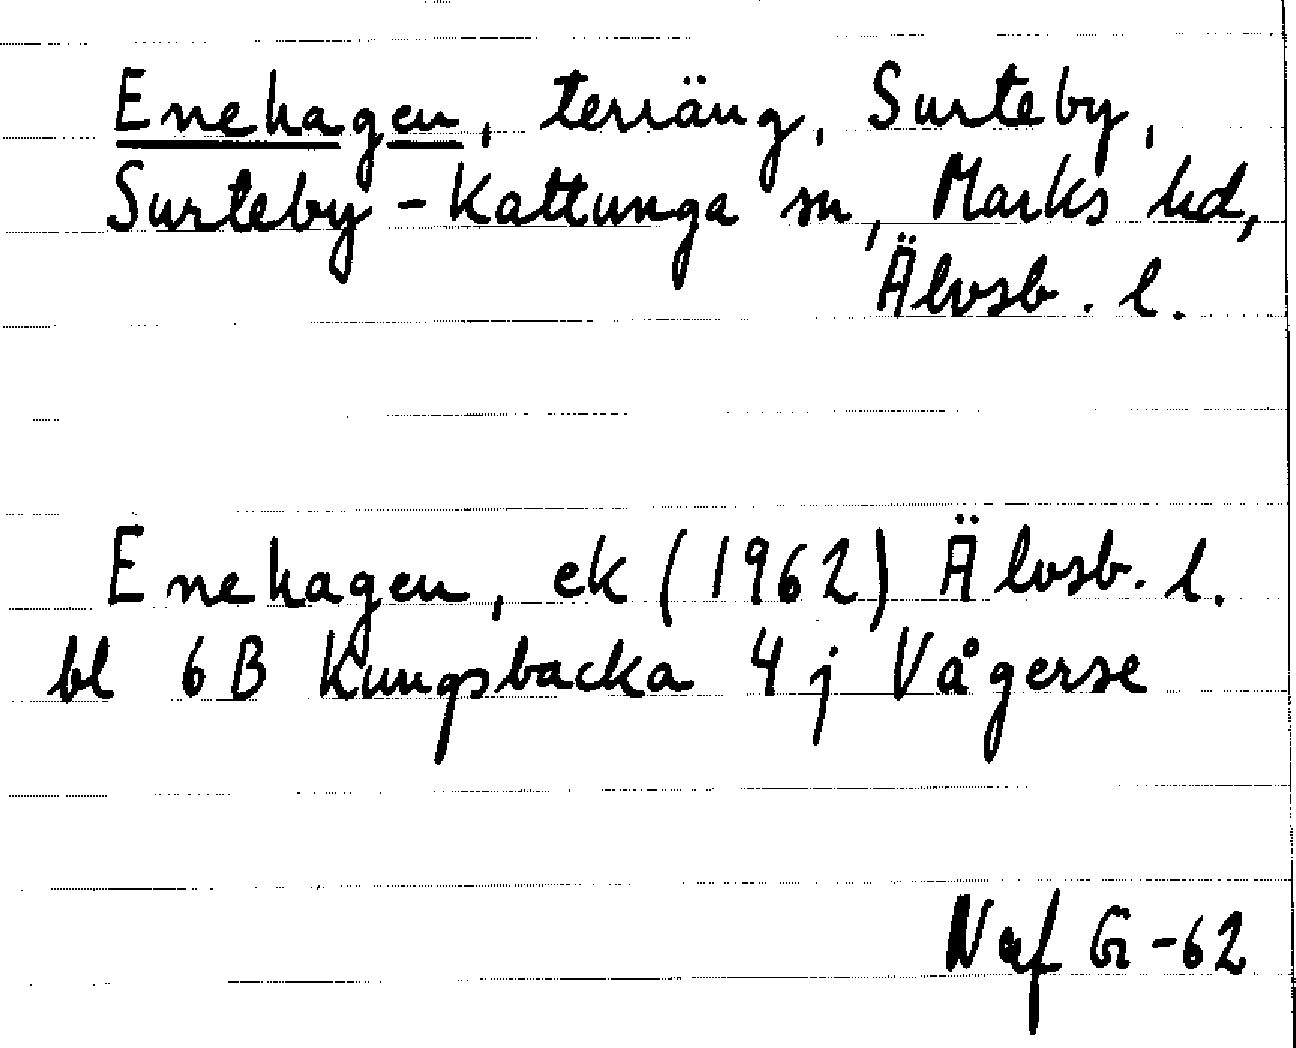 Enehagen, terräng, Surteby,
Surteby-Kattunga sn, Marks hd,
Älvsb. l.
Enehagen, ek (1962) Älvsb. l.
bl 6B Kungsbacka 4j Vågerse
Naf G-62